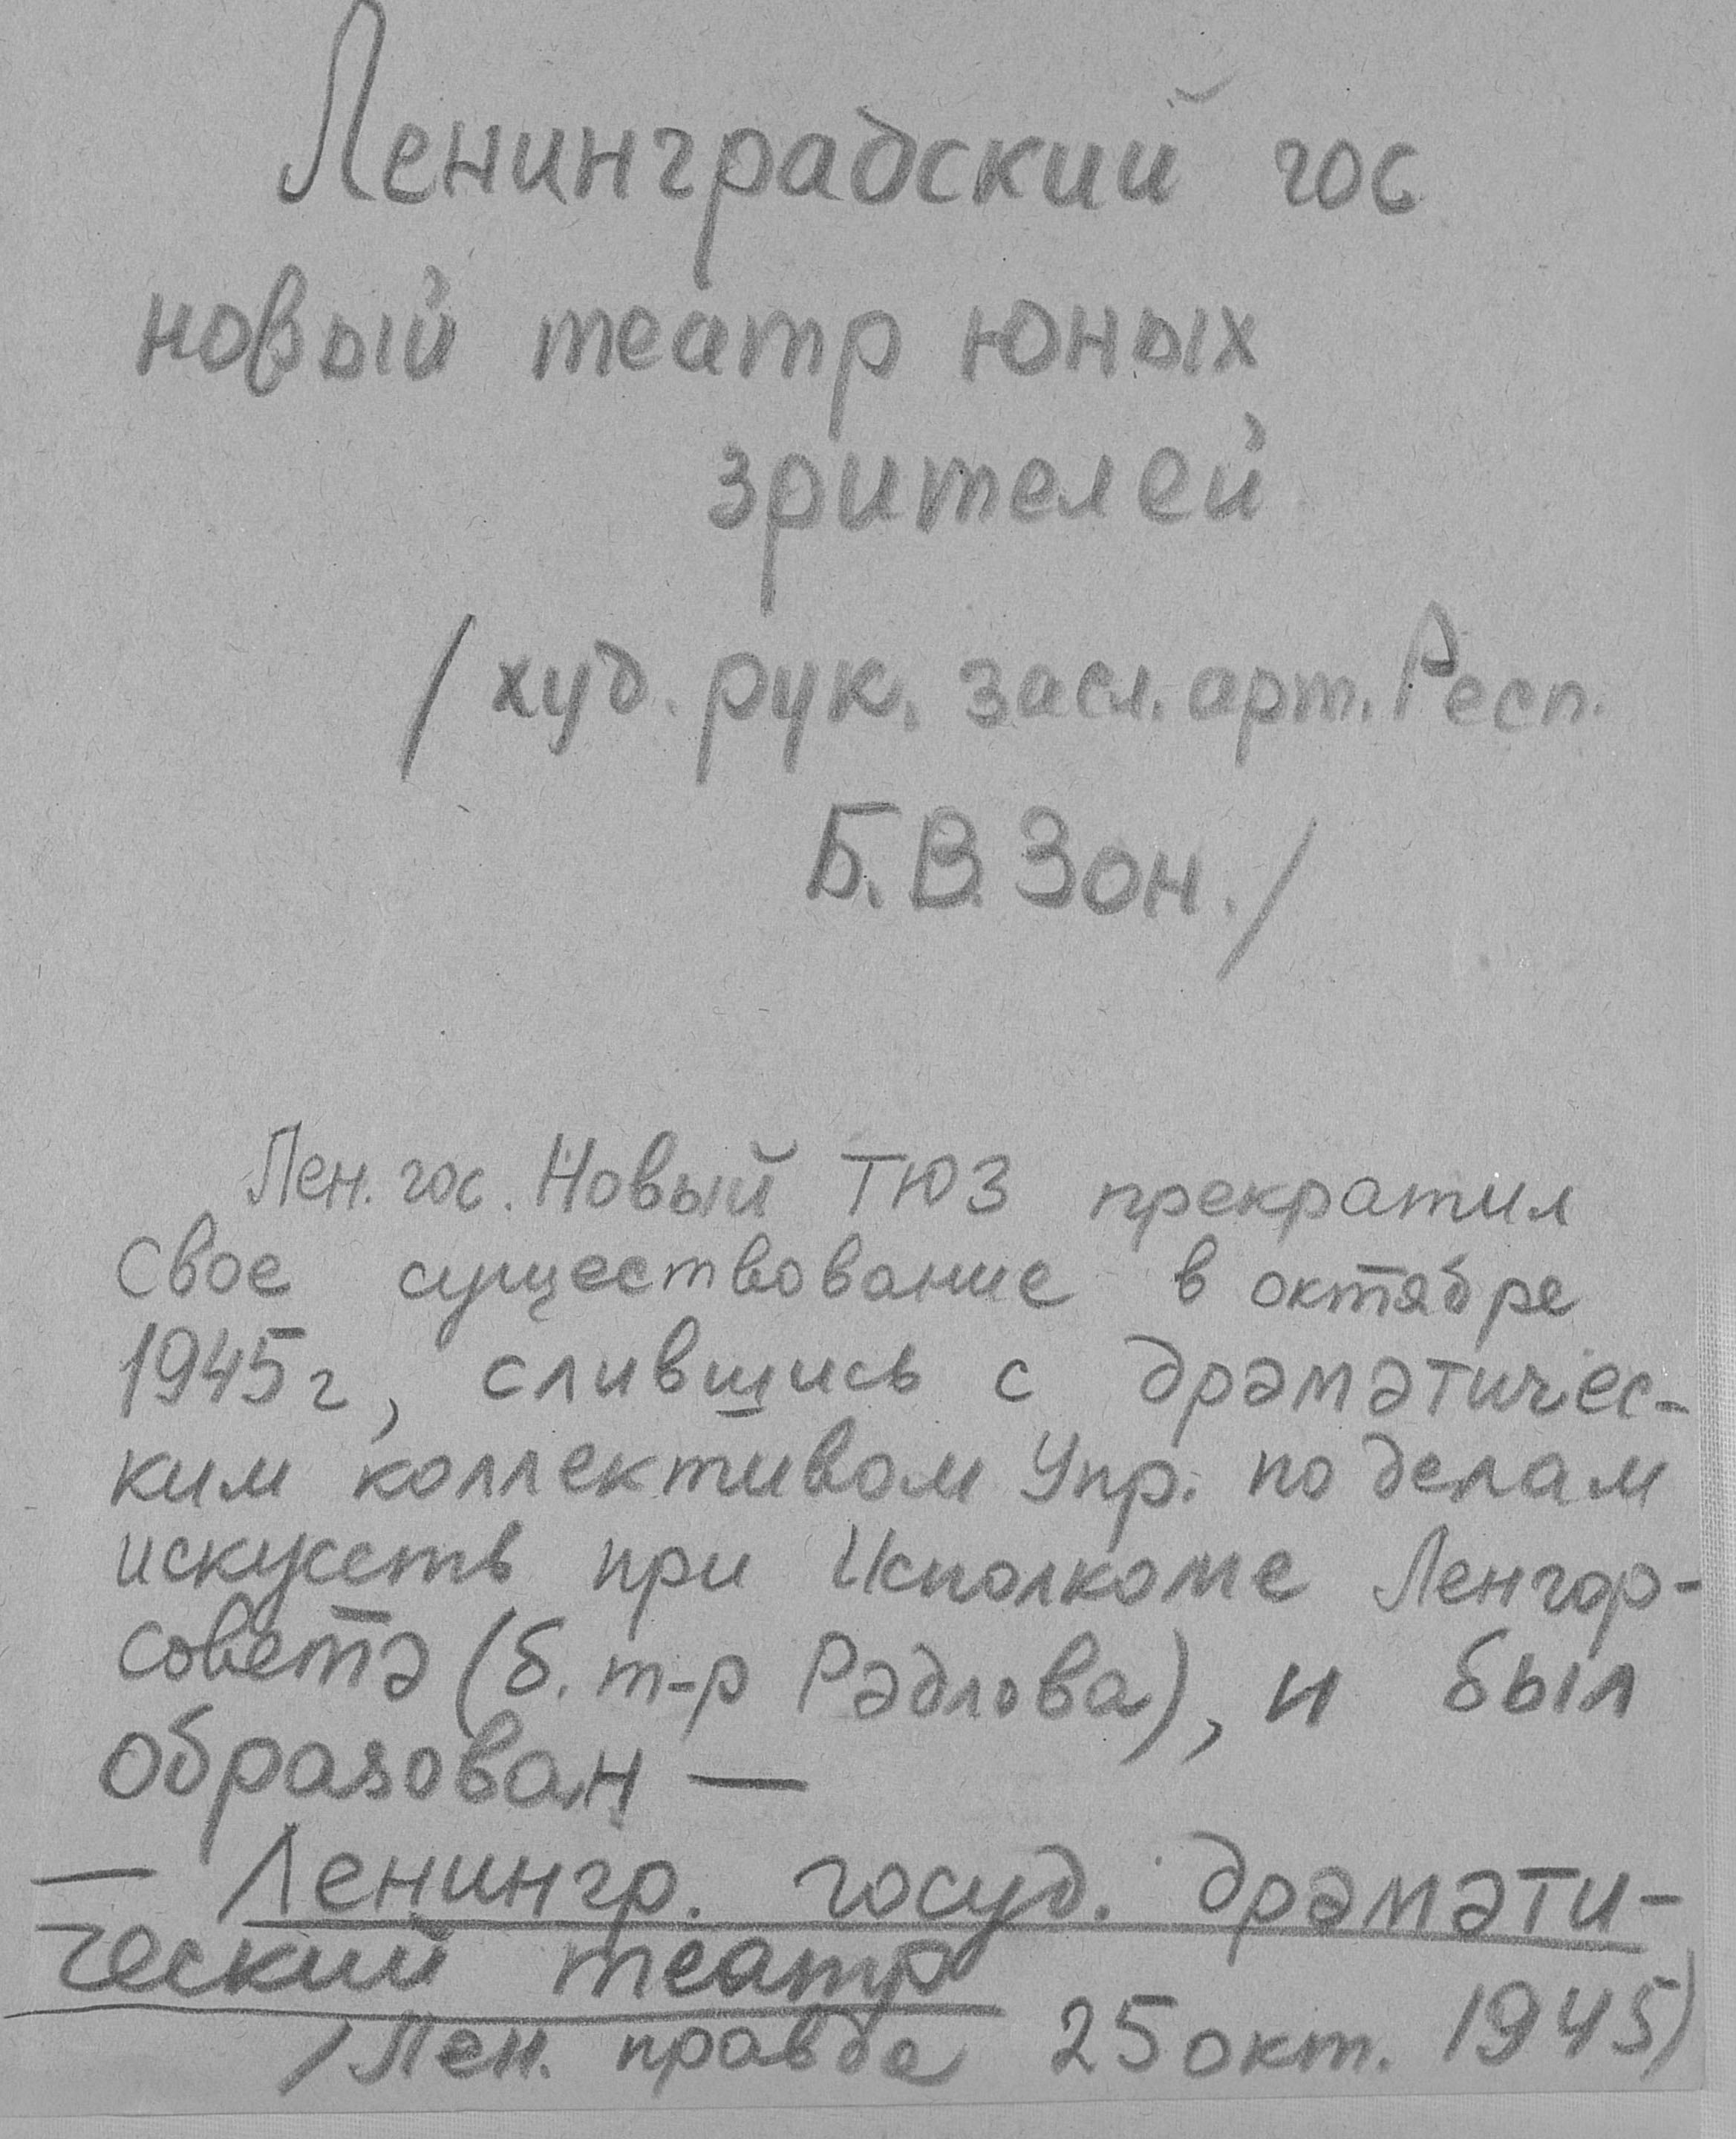 Ленинградский гос
новый театр юных
зрителей
/худ. рук. засл. арт. Респ.
Б.В. Зон./
Лен. гос. Новый ТЮЗ прекратил
свое существование в октябре
1945г, слившись с драматичес-
ким коллективом Упр. по делам
искусств при Исполкоме Ленгор-
совета (б. т-р Радлова), и был
образован —
— Ленингр. госуд. драмати-
ческий театр
/Лен. правда 25 окт. 1945)